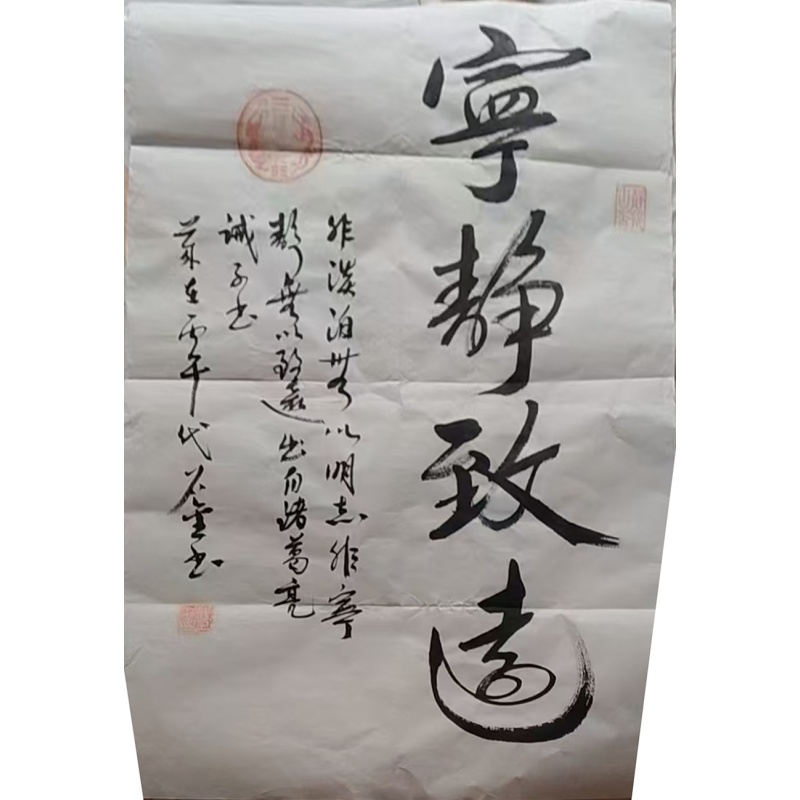 寧靜致遠
非淡泊無以明志非寧
靜無以致遠出自諸葛亮
誡子書
歲在丙午年代